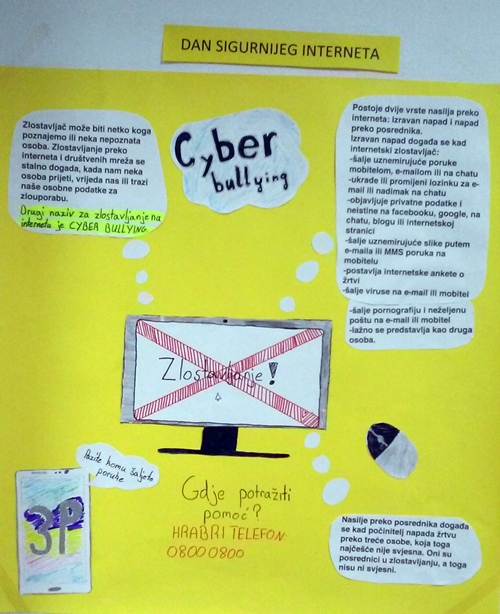 DAN SIGURNIJEG INTERNETA
Zlostavljač može biti netko koga
poznajemo ili neka nepoznata
osoba. Zlostavljanje preko
interneta i društvenih mreža se
stalno događa, kada nam neka
osoba prijeti, vrijeđa nas ili trazi
naše osobne podatke za
zlouporabu.
Drugi naziv za zlostavljanje na
internetu je CYBER BULLYING
Cyber
bullying
Postoje dvije vrste nasilja preko
interneta: izravan napad i napad
preko posrednika.
Izravan napad događa se kad
internetski zlostavljač:
-šalje uznemirujuće poruke
mobitelom, e-mailom ili na chatu
-ukrade ili promijeni lozinku za e-
mail ili nadimak na chatu
-objavljuje privatne podatke i
neistine na facebooku, google, na
chatu, blogu ili internetskoj
stranici
-šalje uznemirujuće slike putem
e-maila ili MMS poruka na
mobitelu
-postavlja internetske ankete o
žrtvi
-šalje viruse na e-mail ili mobitel
-šalje pornografiju i neželjenu
poštu na e-mail ili mobitel
-lažno se predstavlja kao druga
osoba.
Zlostavljanje!
Pazite komu šaljete
poruke
3P
Gdje potražiti
pomoć?
HRABRI TELEFON:
0800 0800
Nasilje preko posrednika događa
se kad počinitelj napada žrtvu
preko treće osobe, koja toga
najčešće nije svjesna. Oni su
posrednici u zlostavljanju, a toga
nisu ni svjesni.